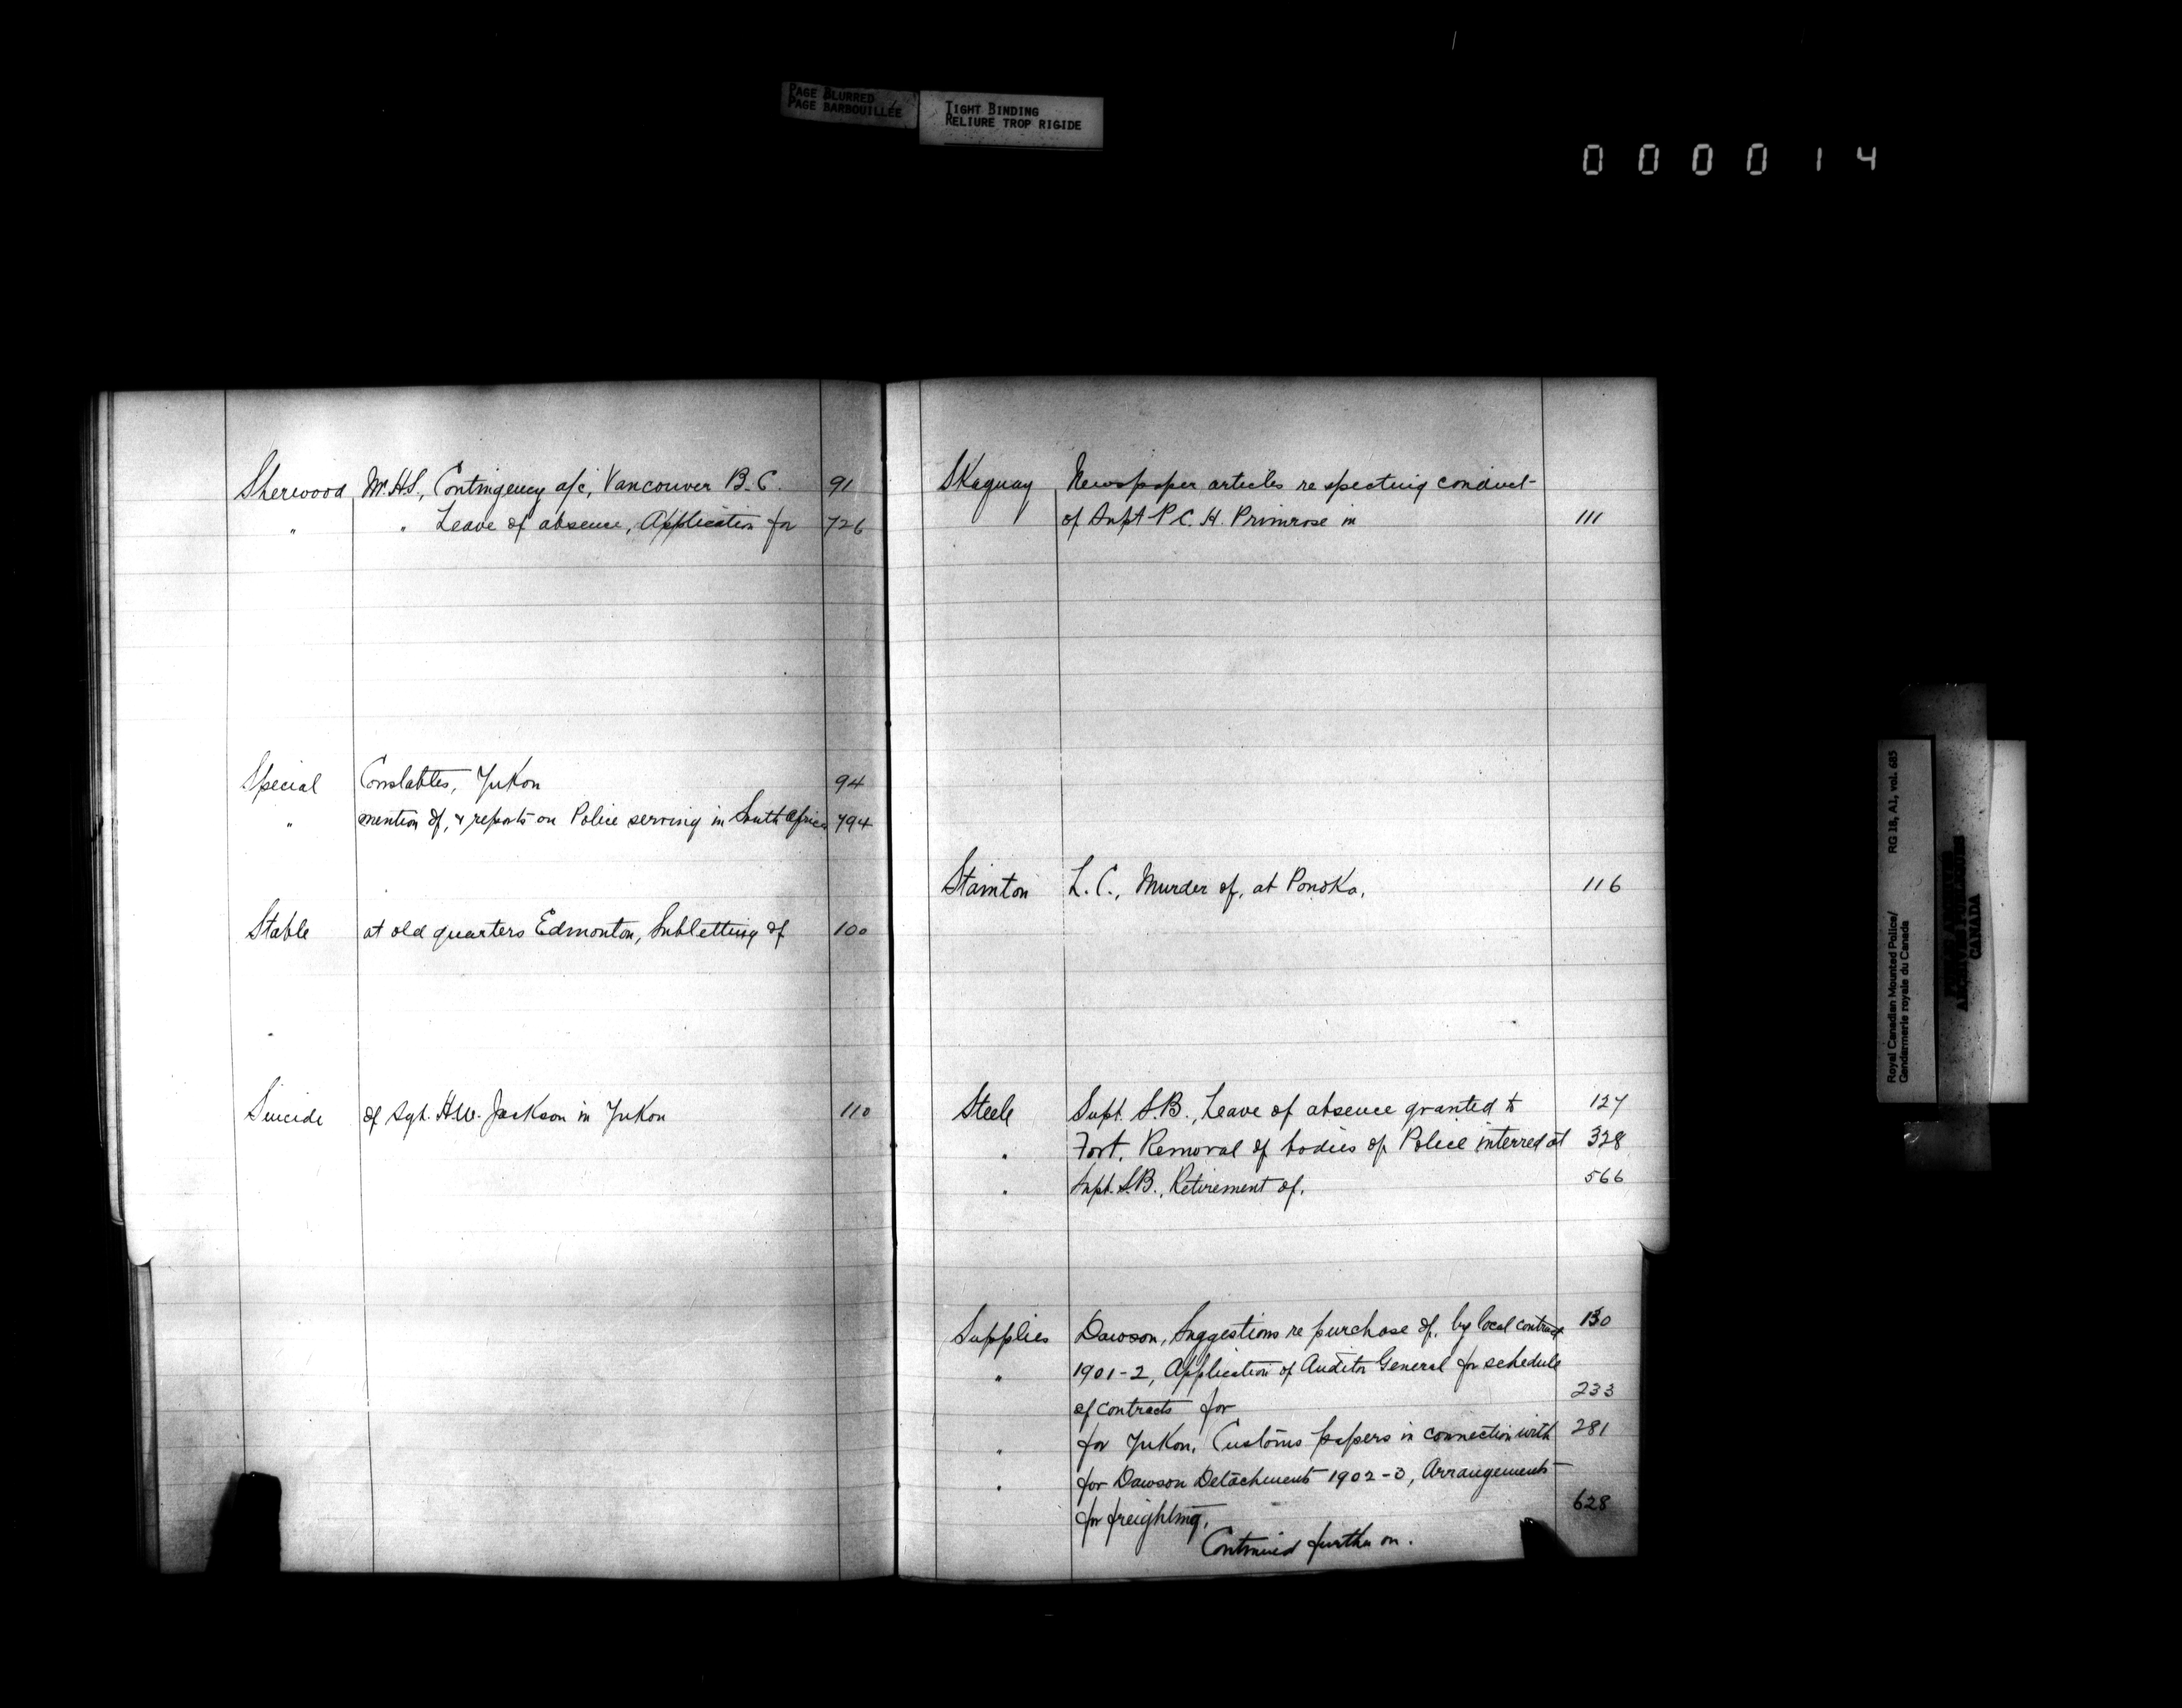 PAGE BLURRED
PAGE BARBOUILLÉE
TIGHT BINDING
RELIURE TROP RIGIDE
000014
Sherwood Mr. H.S., Contingency a/c, Vancouver B.C. 91
" " Leave of absence, Application for 726
Special Constables, Yukon 94
" mention of, & reports on Police serving in South Africa 794
Stable at old quarters Edmonton, Subletting of 100
Suicide of Sgt. H.W. Jackson in Yukon 110
Skaguay Newspaper articles respecting conduct
of Supt P.C.H. Primrose in 111
Stainton L.C., Murder of, at Ponoka. 116
Steele Supt. S.B., Leave of absence granted to 127
" Fort, Removal of bodies of Police interred at 328
" Supt. S.B., Retirement of. 566
Supplies Dawson, Suggestions re purchase of, by local contract 130
" 1901-2, Application of Auditor General for schedule
of contracts for 233
" for Yukon, Customs papers in connection with 281
" for Dawson Detachment 1902-3, Arrangements
for freighting. 628
Continued further on.
Royal Canadian Mounted Police/
Gendarmerie royale du Canada
RG 18, A1, vol. 685
CANADA